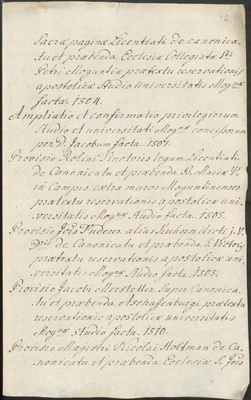 Sacræ paginæ Licentiati de canonica-
tu et præbenda Ecclesiæ Collegiatæ Sti
Petri Moguntiæ prætextu reservationis
apostolicæ Studio Universitatis Mognæ
factæ. 1504.
Ampliatio et confirmatio privilegiorum
Studio et universitati Mognæ concessorum
per D. Jacobum facta. 1507.
Provisio Nolini legum Licentiati
de Canonicatu et præbenda B. Mariæ V.
in Campo extra muros Moguntinenses
prætextu reservationis apostolicæ uni-
versitatis Mognæ Studio facta. 1505.
Provisio Jois alias dicti j. V.
Dris de Canonicatu et præbenda S. Victoris
prætextu reservationis apostolicæ uni-
versitati Mognæ Studio facta. 1505.
Provisio Jacobi Merstetter super Canonica-
tu et præbenda Aschaffenburgi prætextu
reservationis apostolicæ universitatis
Mognæ studio facta. 1510.
Provisio Magistri Nicolai Holtman de Ca-
nonicatu et præbenda Ecclesiæ S.